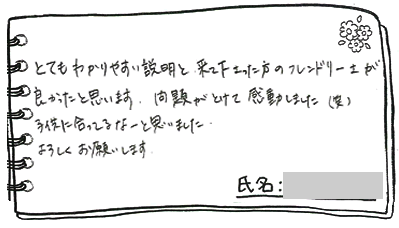 とてもわかりやすい説明と来て下さった方のフレンドリーさが
良かったと思います。問題がとけて感動しました(笑)
子供に合ってるなーと思いました。
よろしくお願いします。
氏名: